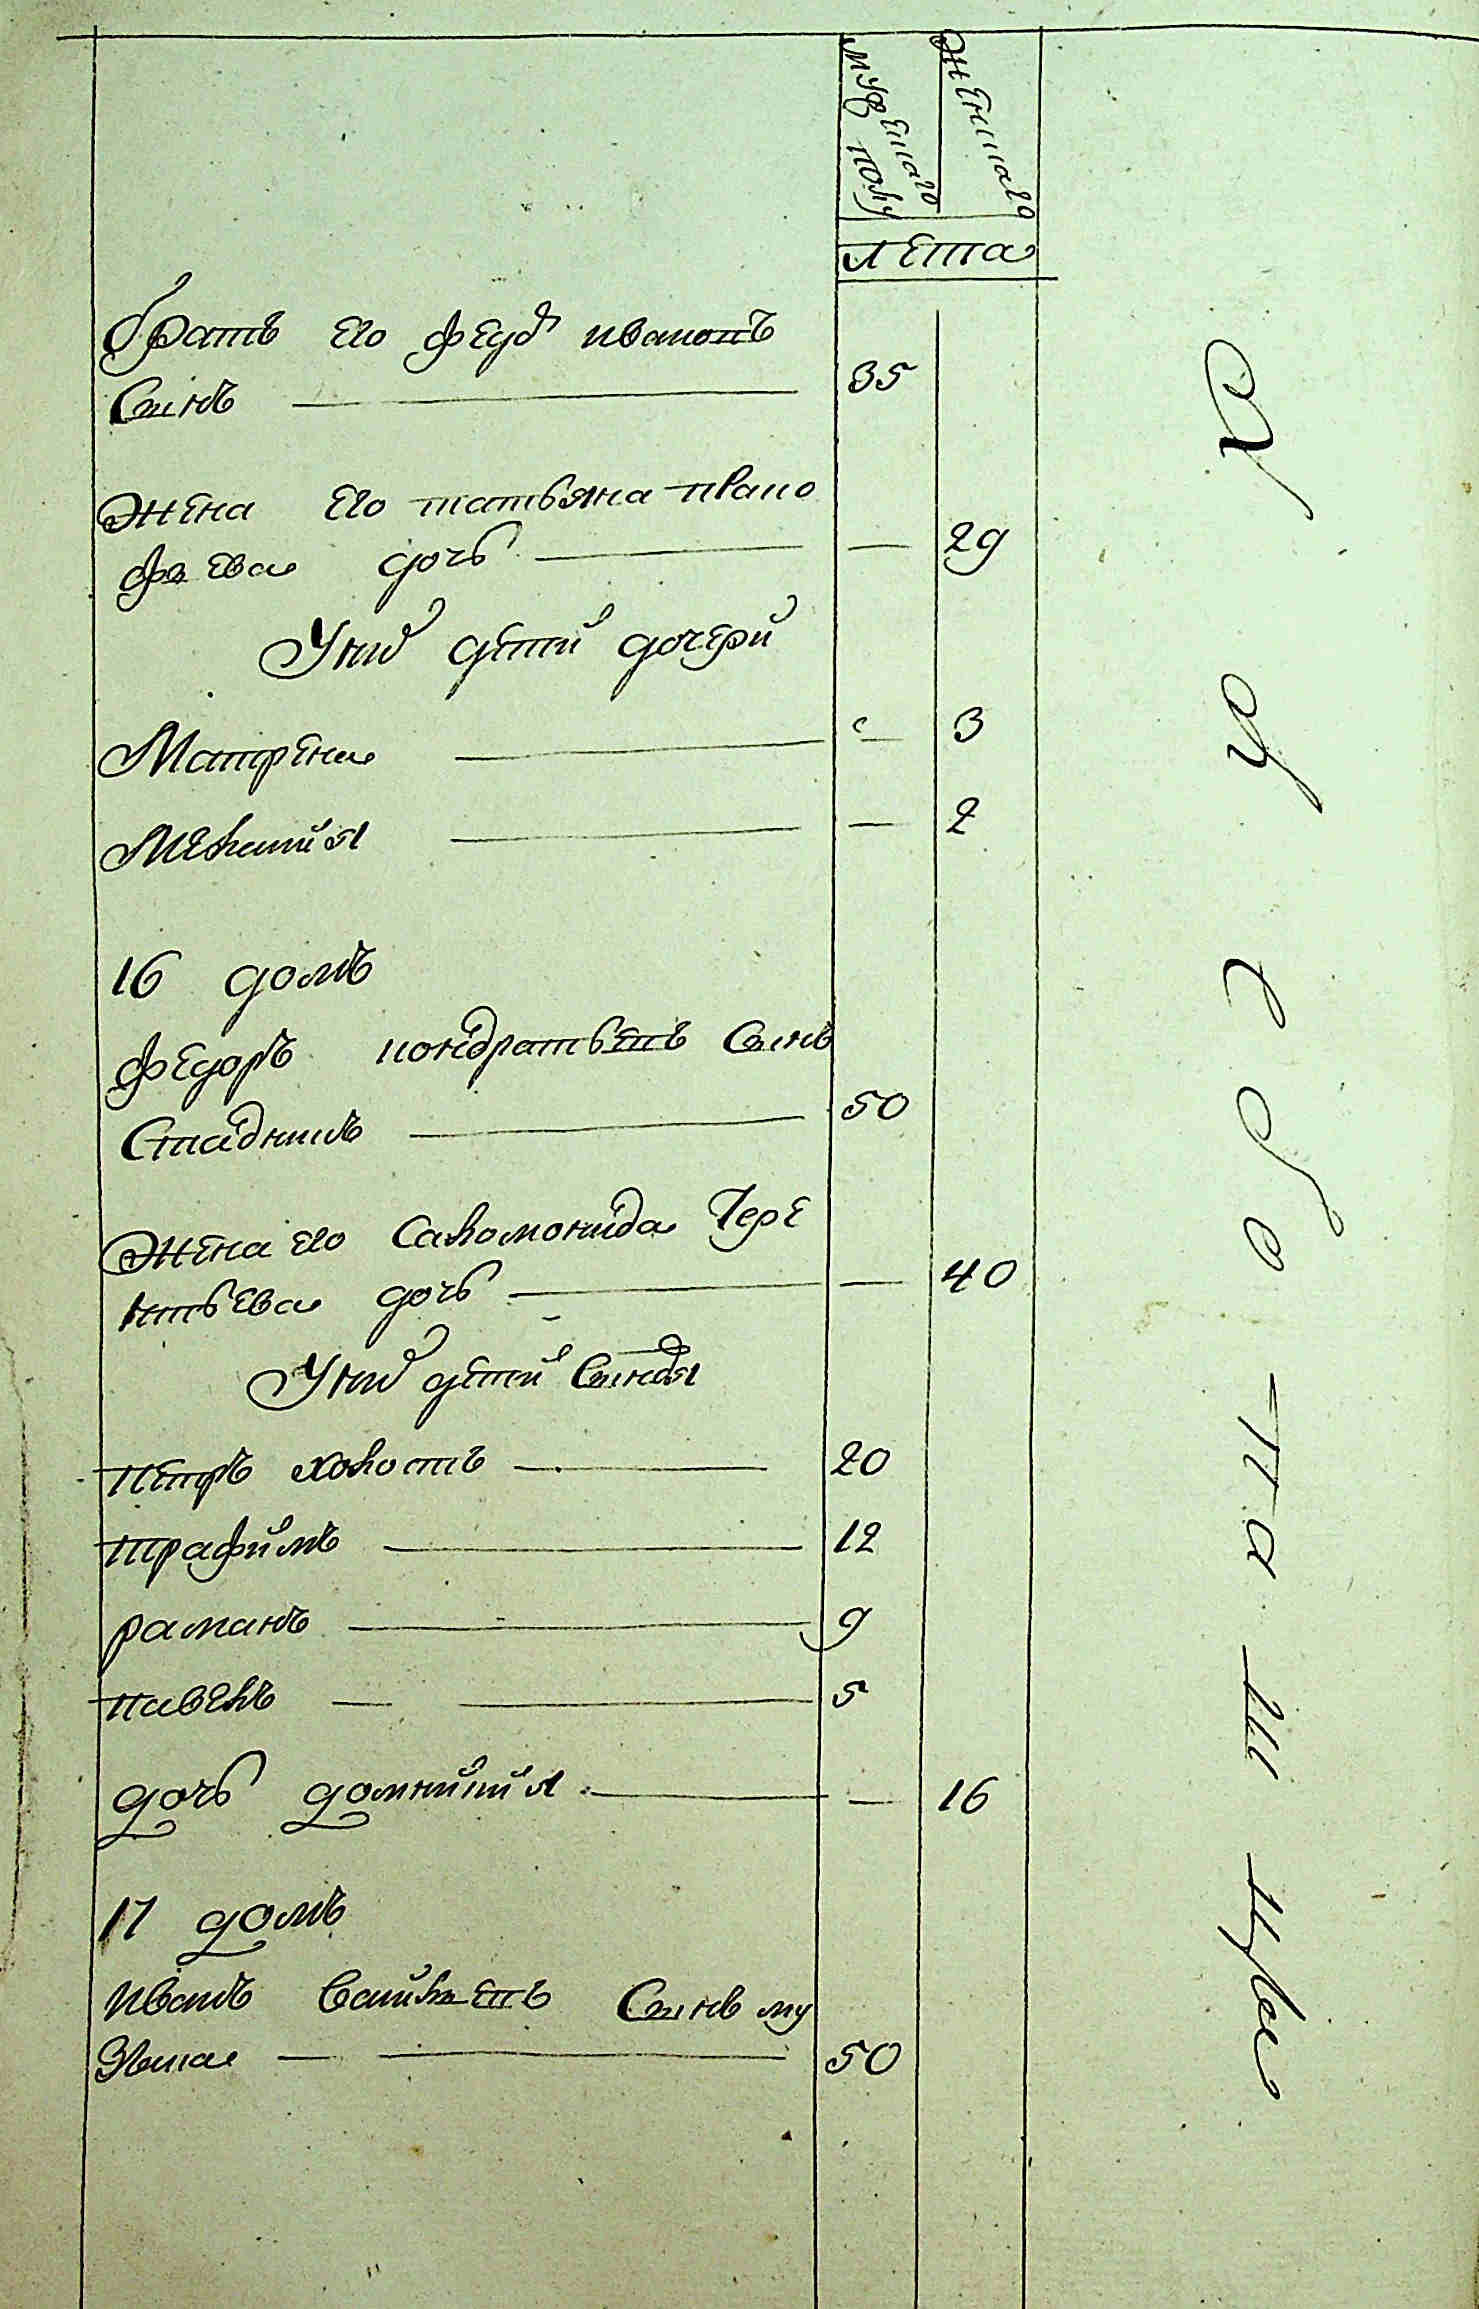 мужескаго полу
женскаго
лета
братъ его федоръ ивановъ
Синъ 35
Жена его татьяна прако
фьева дочь — 29
У них детей дочери
Матрена — 3
Мелания — 2
16 домъ
федоръ кондратьевъ Синъ
Спадникъ 50
Жена его Саломонида Тере
нтьева дочь — 40
У них детей Синовья
петръ холостъ 20
трафимъ 12
раманъ 9
павелъ 5
дочь домникия — 16
17 домъ
иванъ Васильевъ Синъ му
зыка 50